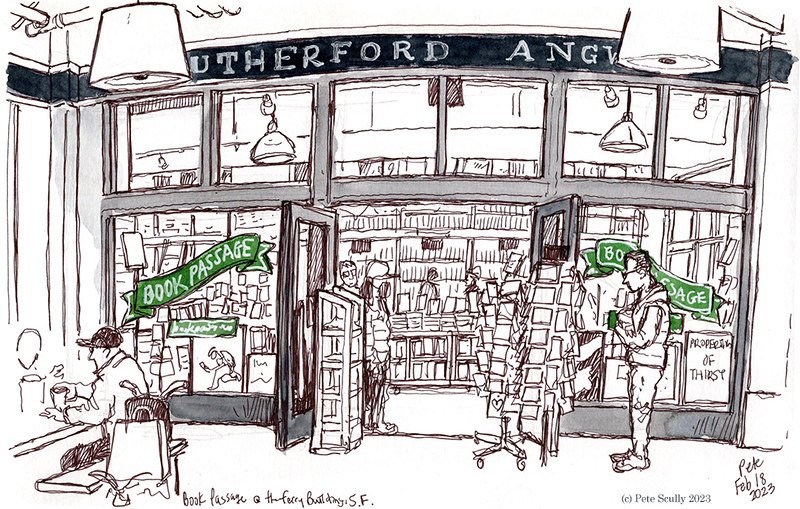 UTHERFORD ANGW
BOOK PASSAGE
BO
SSAGE
PROPERTIES
OF
THIRST
Book Passage @ the Ferry Building, S.F.
(c) Pete Scully 2023
Pete
Feb 18
2023